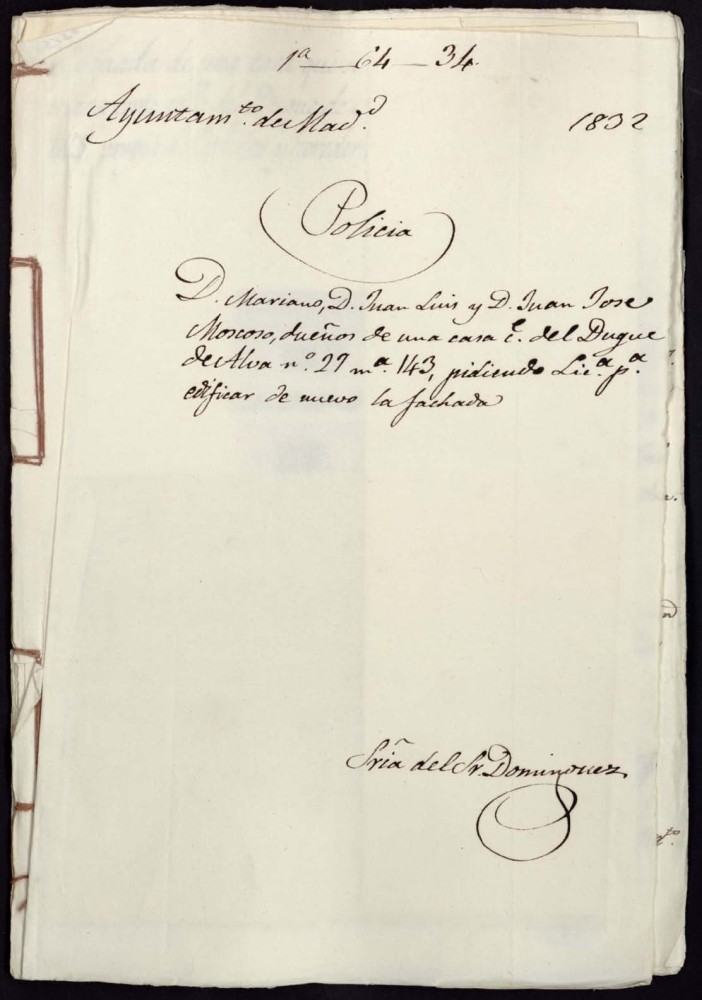 1ª — 64 — 34.
Ayuntamto. de Madd.
1832
Policia
D. Mariano, D. Juan Luis y D. Juan Jose
Moscoso, dueños de una casa ce. del Duque
de Alva nº. 27 mª. 143, pidiendo Lica. pª.
edificar de nuevo la fachada
Sria del Sr. Dominguez